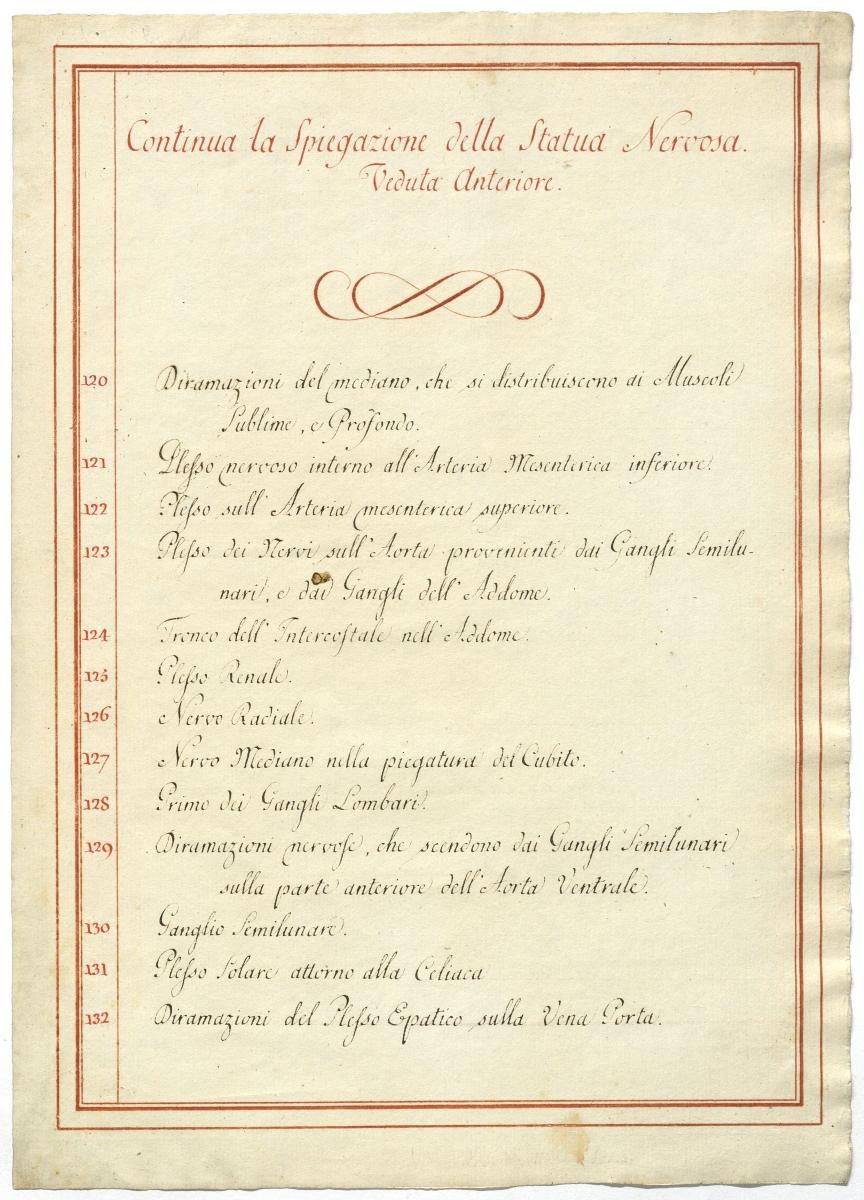 Continua la Spiegazione della Statua Nervosa.
Veduta Anteriore.
120 Diramazioni del mediano, che si distribuiscono ai Muscoli
Sublime, e Profondo.
121 Plesso nervoso interno all'Arteria Mesenterica inferiore.
122 Plesso sull'Arteria mesenterica superiore.
123 Plesso dei Nervi sull'Aorta provenienti dai Gangli Semilu-
nari, e dai Gangli dell'Addome.
124 Tronco dell'Intercostale nell'Addome.
125 Plesso Renale.
126 Nervo Radiale.
127 Nervo Mediano nella piegatura del Cubito.
128 Primo dei Gangli Lombari.
129 Diramazioni nervose, che scendono dai Gangli Semilunari
sulla parte anteriore dell'Aorta Ventrale.
130 Ganglio Semilunare.
131 Plesso Solare attorno alla Celiaca
132 Diramazioni del Plesso Epatico sulla Vena Porta.